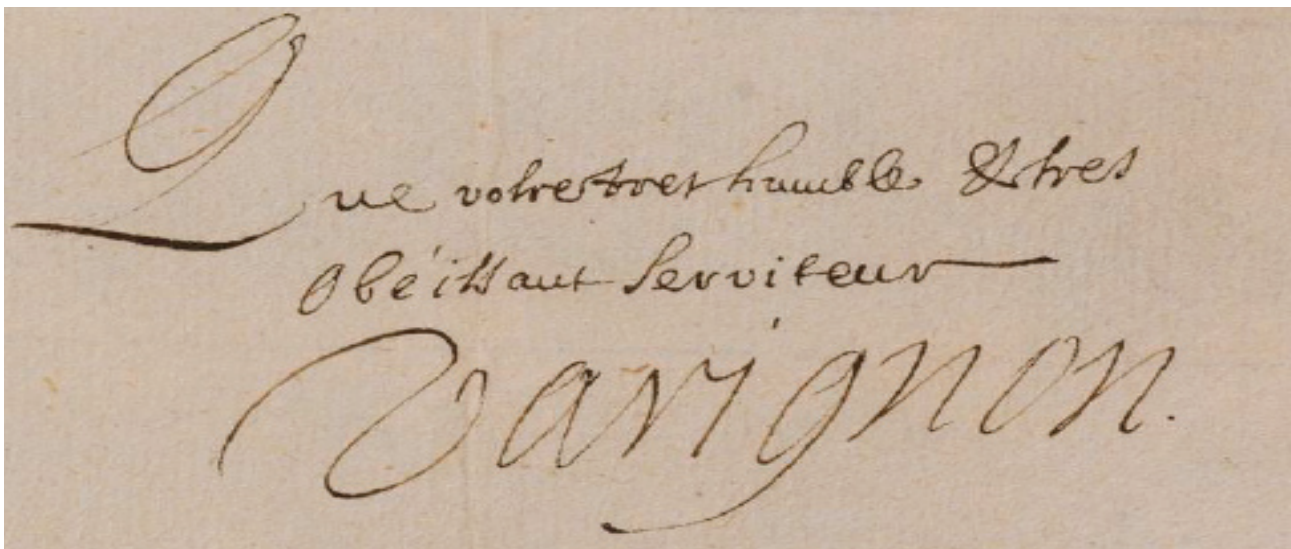 Que votre tres humble & tres
Obéissant Serviteur
Varignon.